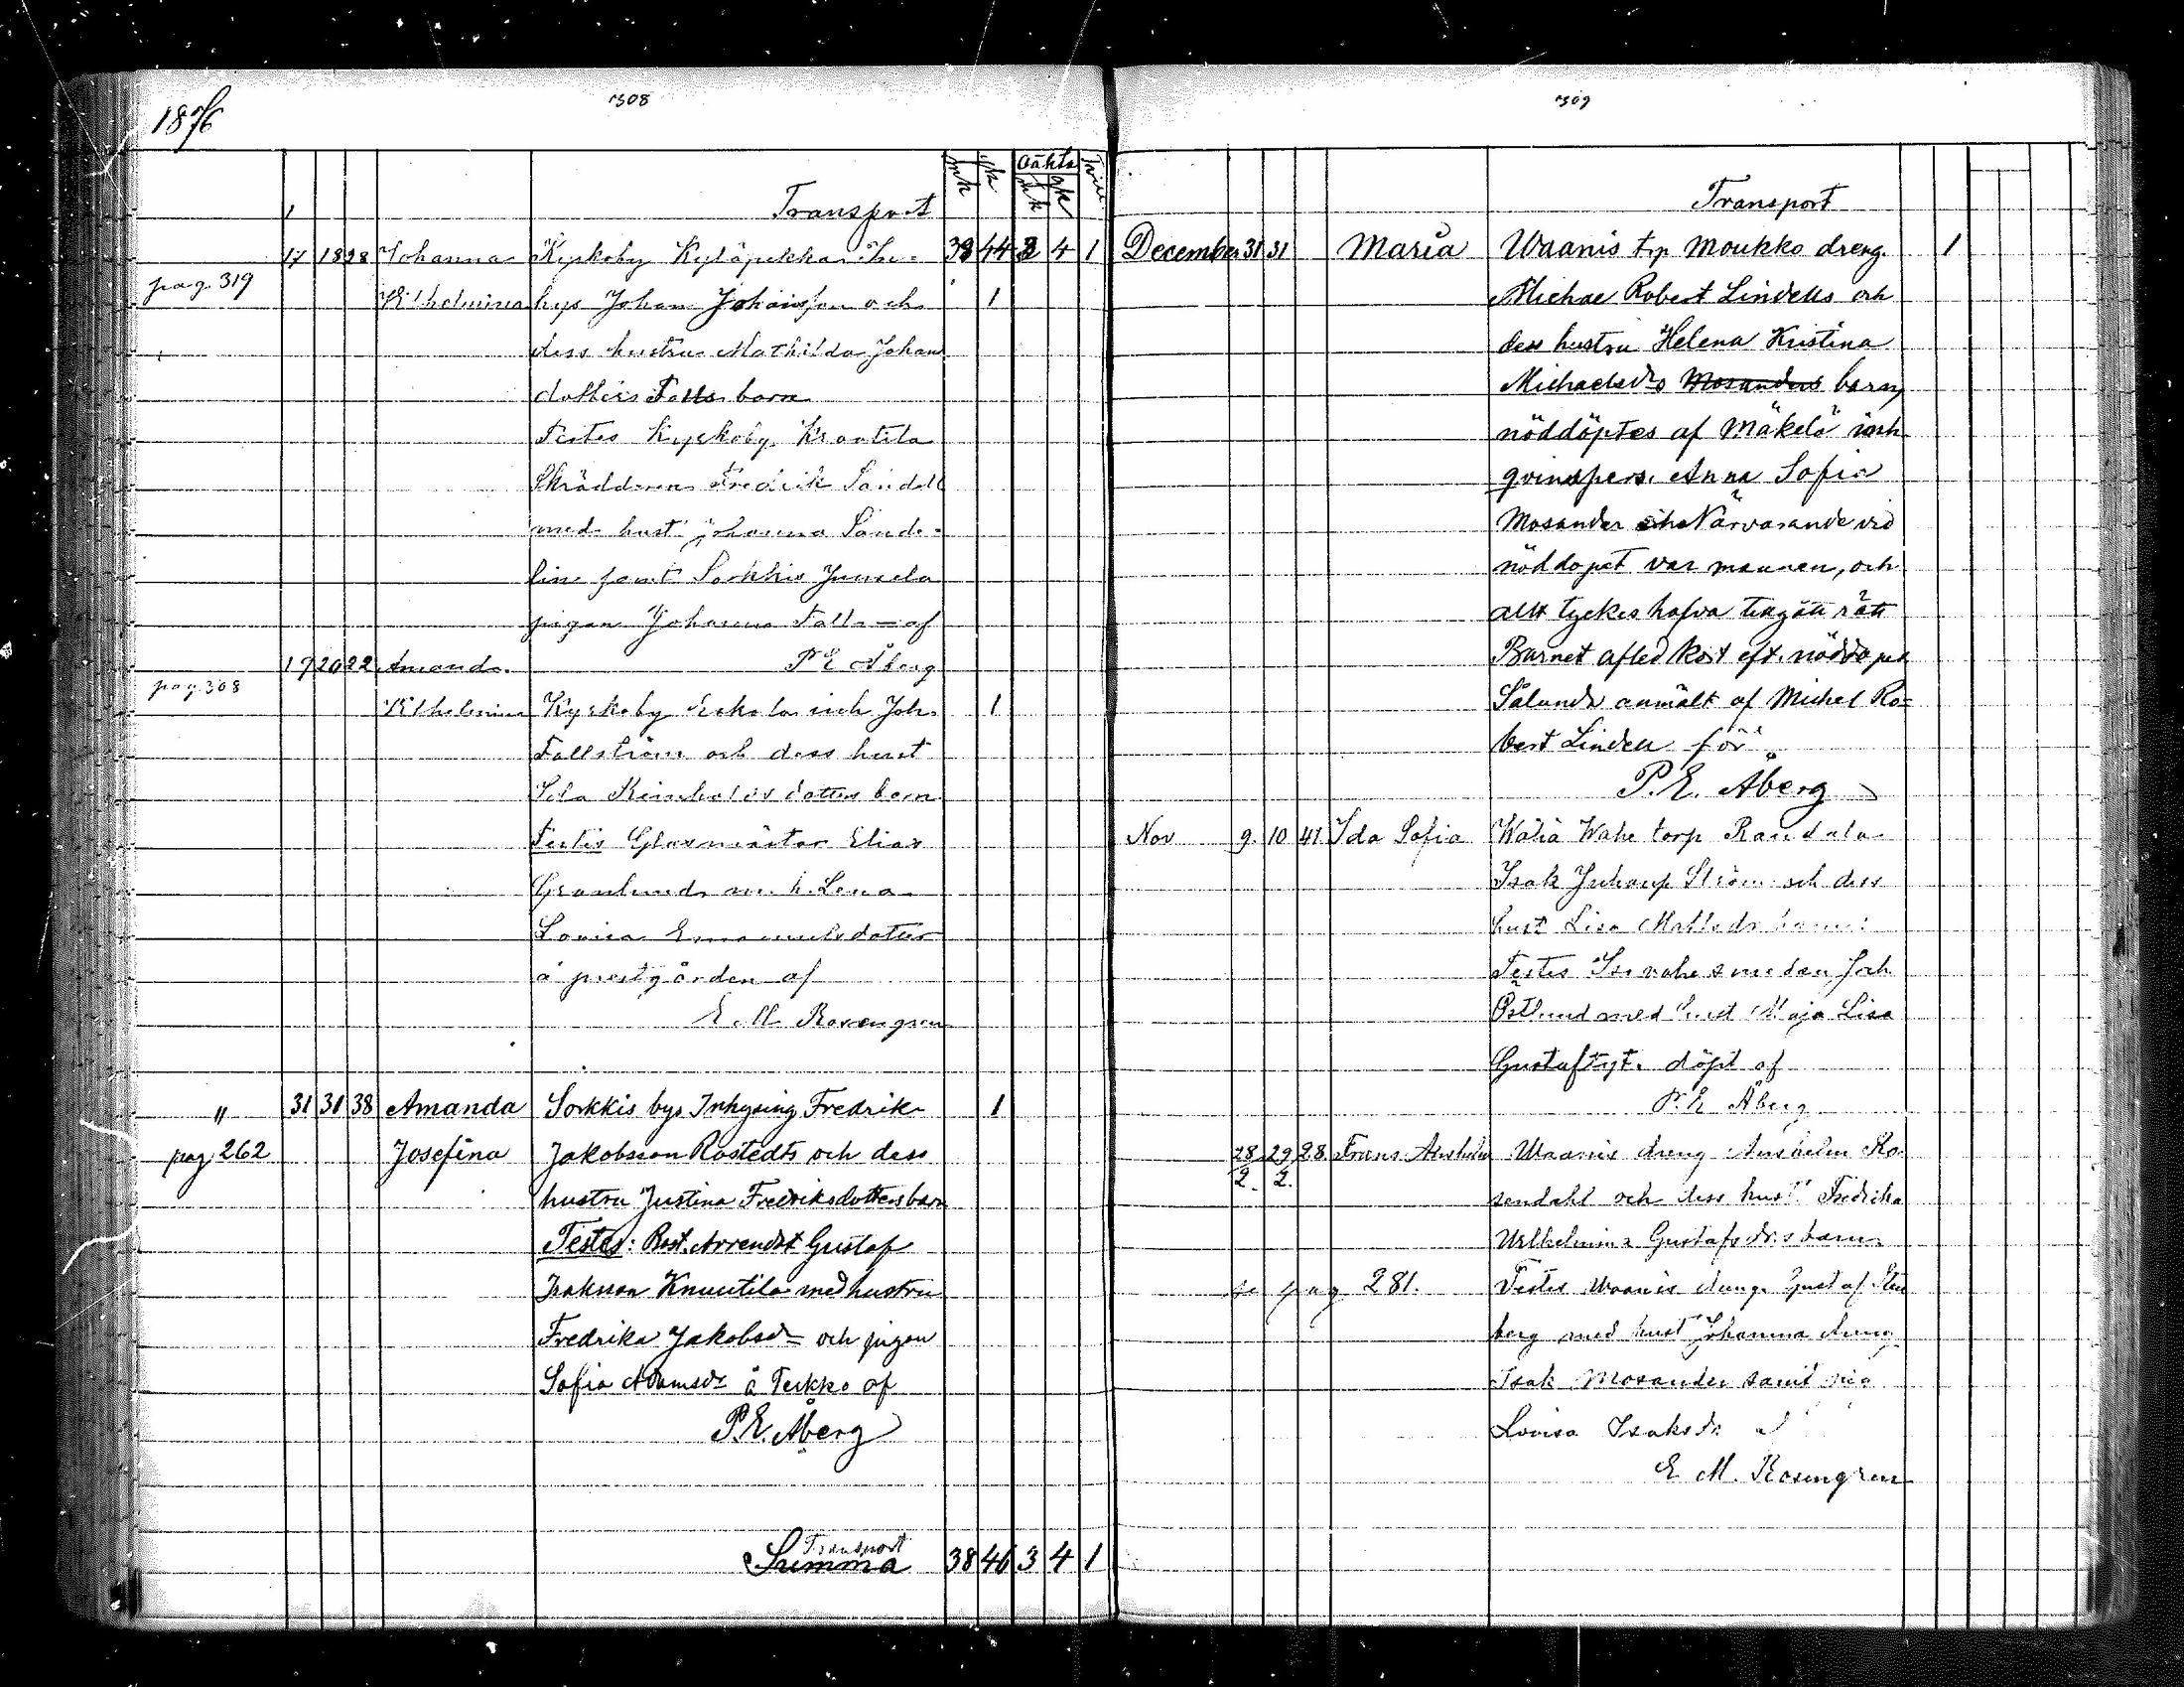 1876
308
mk qk Oäkta mk qk
Transport
17 18 28 Johanna Kyrkoby Kyläpekka In- 38 44 3 4 1
pag. 319 Wilhelmina hys Johan Johansson och 1
dess hustru Mathilda Johans
dotters Falls barn
Testes Kyrkoby Knaatila
Skräddaren Fredrik Sandell
med hust Johanna Sande-
lin samt Sorkkis Juusela
pigan Johanna Fall — af
17 20 22 Amanda P E Åberg
pag. 308 Wilhelmina Kyrkoby Eskola inh Joh. 1
Fallström och dess hust
Lisa Reinholdsdotters barn
Testis Glasmästar Elias
Granlund m. h. Lena
Lovisa Emanuelsdotter
å prestgården af
E. M. Rosengren
" 31 31 38 Amanda Sorkkis bys Inhysing Fredrik 1
pag 262 Josefina Jakobsson Rostedts och dess
hustru Justina Fredriksdotters barn
Testes: Rust. Arrendat Gustaf
Isaksson Knuutila med hustru
Fredrika Jakobsdr och pigan
Sofia Adamsdr å Teikko af
P.E. Åberg
Transport
Summa 38 46 3 4 1
309
Transport
December 31 31 Maria Waanis trp Moukko dreng. 1
Michae Robert Lindells och
dess hustru Helena Kristina
Michaelsdrs Mosanders barn,
nöddöptes af Mäkelä inh
qvinspers. Anna Sofia
Mosander Närvarande vid
nöddopet var mannen, och
allt tyckes hafva tillgått rätt
Barnet afled kort eft. nöddopet
Sålunda anmält af Michel Ro-
bert Lindell för
P.E. Åberg
Nov 9. 10 41 Ida Sofia Käliä Wahe torp Randala
Isak Juhanp Ström och dess
hust Lisa Mattsdr barn:
Testes Isovahe smeden Joh
Östlund med hust Maja Lisa
Gustafst. döpt af
P. E Åberg
28/2. 29/2. 28. Frans Anshelm Waanis dreng Anshelm Ro-
sendahl och dess hust Fredrika
Wilhelmina Gustafsdrs barn.
se pag 281. Testes Waanis dreng. Gustaf Sten
berg med hust Johanna dreng
Isak Mosander samt pig
Lovisa Isaksdr
E. M. Rosengren